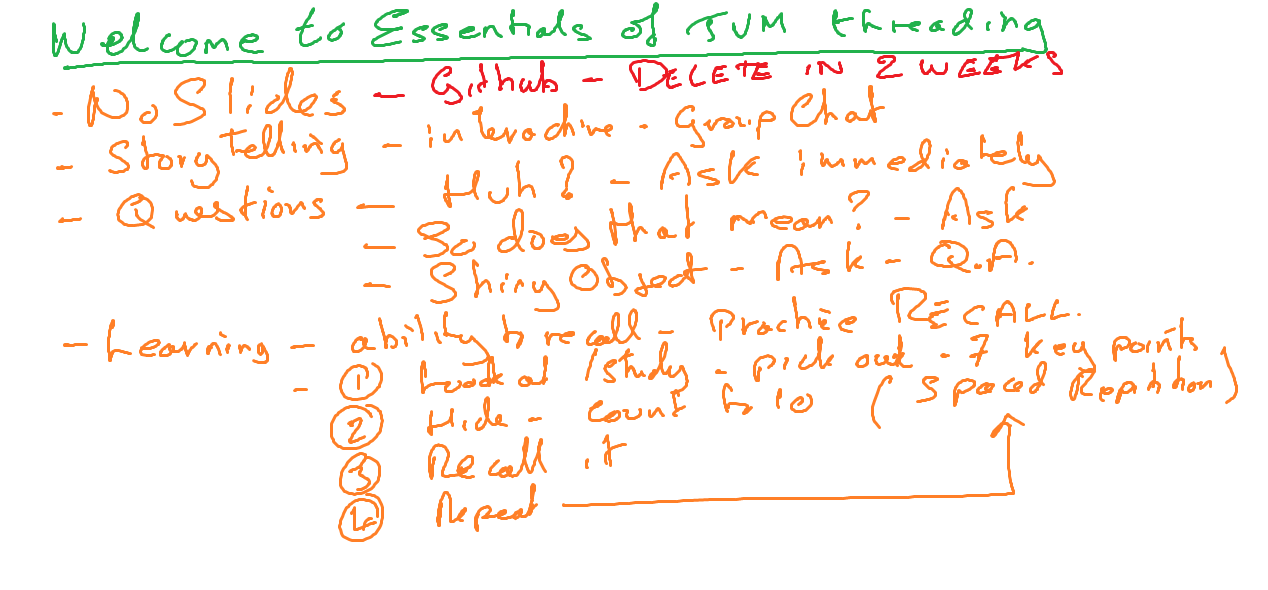 Welcome to Essentials of JVM threading
- No Slides - Github - DELETE IN 2 WEEKS
- Story telling - interactive - Group Chat
- Questions - Huh? - Ask immediately
- So does that mean? - Ask
- Shiny Object - Ask - Q.A.
- Learning - ability to recall - Practice RECALL.
- ① Look at /study - pick out - 7 key points
② Hide - count to 10 (Spaced Repitition)
③ Recall it
④ Repeat